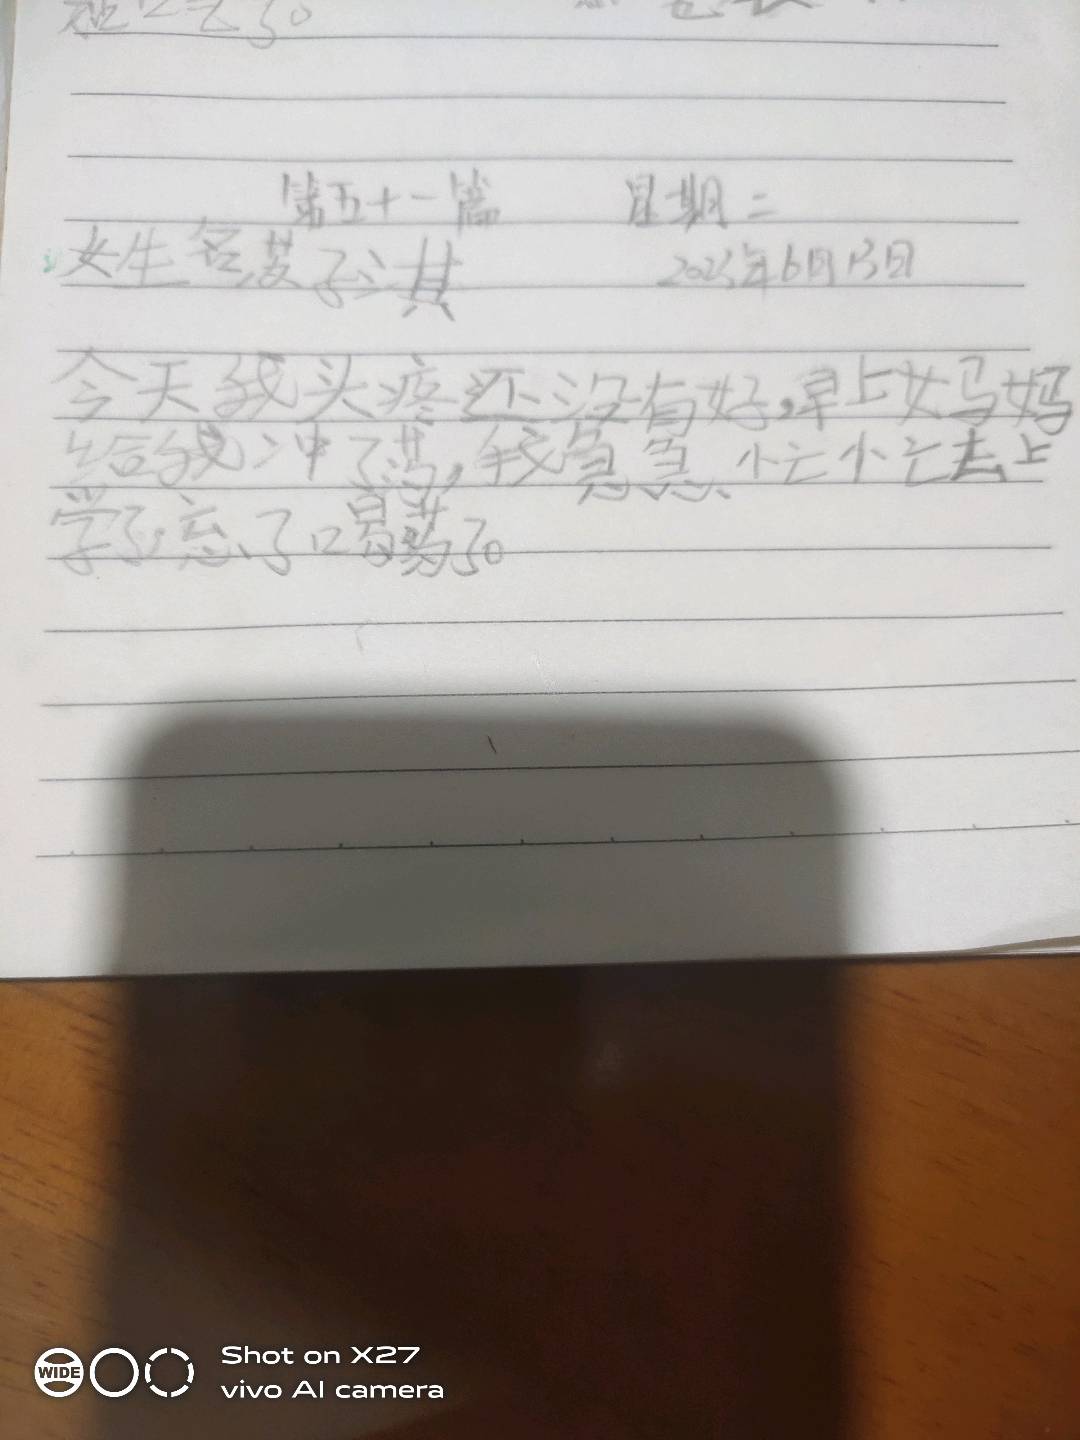 第五十一篇 星期二
2023年6月13日
今天我头疼还没有好,早上妈妈
给我冲了药,我急急忙忙去上
学了,忘了喝药了。
WIDE
Shot on X27
vivo AI camera